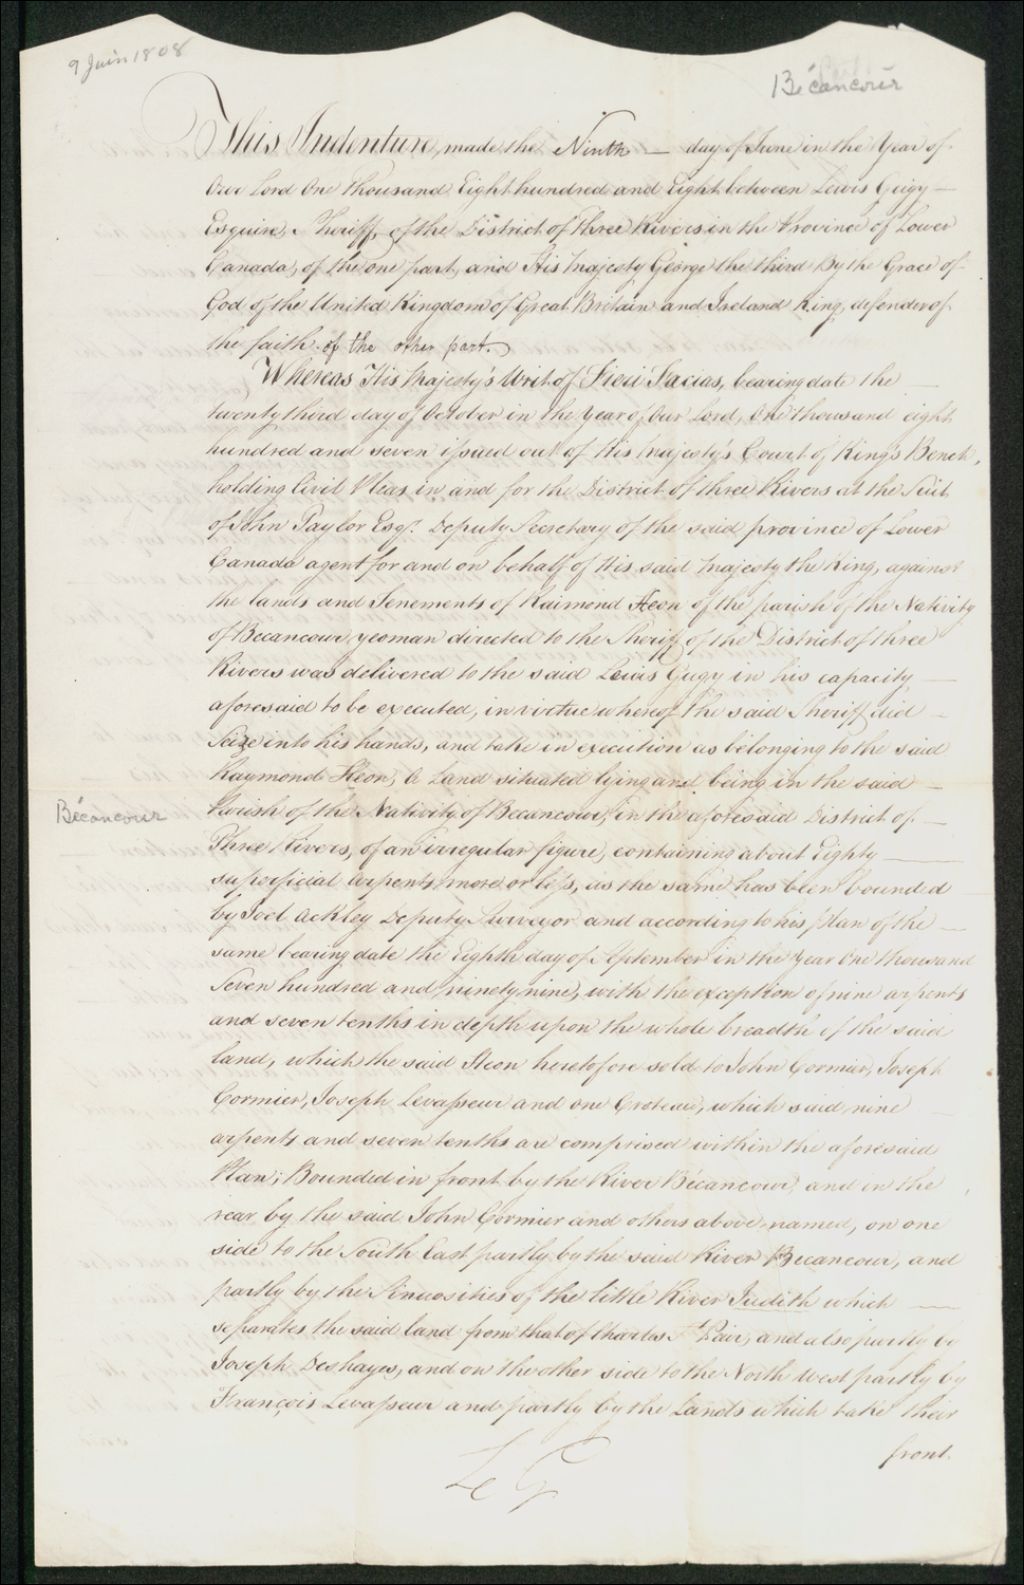 9 Juin 1808
Bécancour
This Indenture, made the Ninth — day of June in the Year of
Our Lord One thousand Eight hundred and Eight between Lewis Gugy —
Esquire, Sheriff, of the District of Three Rivers in the Province of Lower
Canada, of the one part, and His Majesty George the third By the Grace of
God of the United Kingdom of Great Britain and Ireland King, defender of
the faith of the other part.
Whereas His Majesty's Writ of Fieri Facias, bearing date the —
twenty third day of October in the Year of Our Lord, One thousand eight
hundred and seven issued out of His Majesty's Court of King's Bench,
holding Civil Pleas in and for the District of three Rivers at the Suit
of John Taylor Esqr. Deputy Secretary of the said province of Lower
Canada agent for and on behalf of His said Majesty the King, against
the lands and Tenements of Raimond Heon of the parish of the Nativity
of Becancour yeoman directed to the Sheriff of the District of three
Rivers was delivered to the said Lewis Gugy in his capacity —
aforesaid to be executed, in virtue whereof the said Sheriff did —
Seize into his hands, and take in execution as belonging to the said
Raymond Heon, A Land situated lying and being in the said —
Bécancour
Parish of the Nativity of Becancour, in the aforesaid District of —
Three Rivers, of an irregular figure, containing about Eighty —
superficial arpents more or less, as the same has been bounded
by Joel Ackley Deputy Surveyor and according to his plan of the —
same bearing date the Eighth day of September in the Year One thousand
Seven hundred and ninety nine, with the exception of nine arpents
and seven tenths in depth upon the whole breadth of the said
Land, which the said Heon heretofore sold to John Cormier, Joseph
Cormier, Joseph Levasseur and one Groteau, which said nine
arpents and seven tenths are comprised within the aforesaid
Plan; Bounded in front by the River Bécancour, and in the
rear by the said John Cormier and others above named, on one
side to the South East partly by the said River Becancour, and
partly by the Sinuosities of the little River Judith which —
separates the said land from that of Charles St Pair, and also partly by
Joseph Deshayes, and on the other side to the North west partly by
François Levasseur and partly by the Lands which take their
front.
Le G